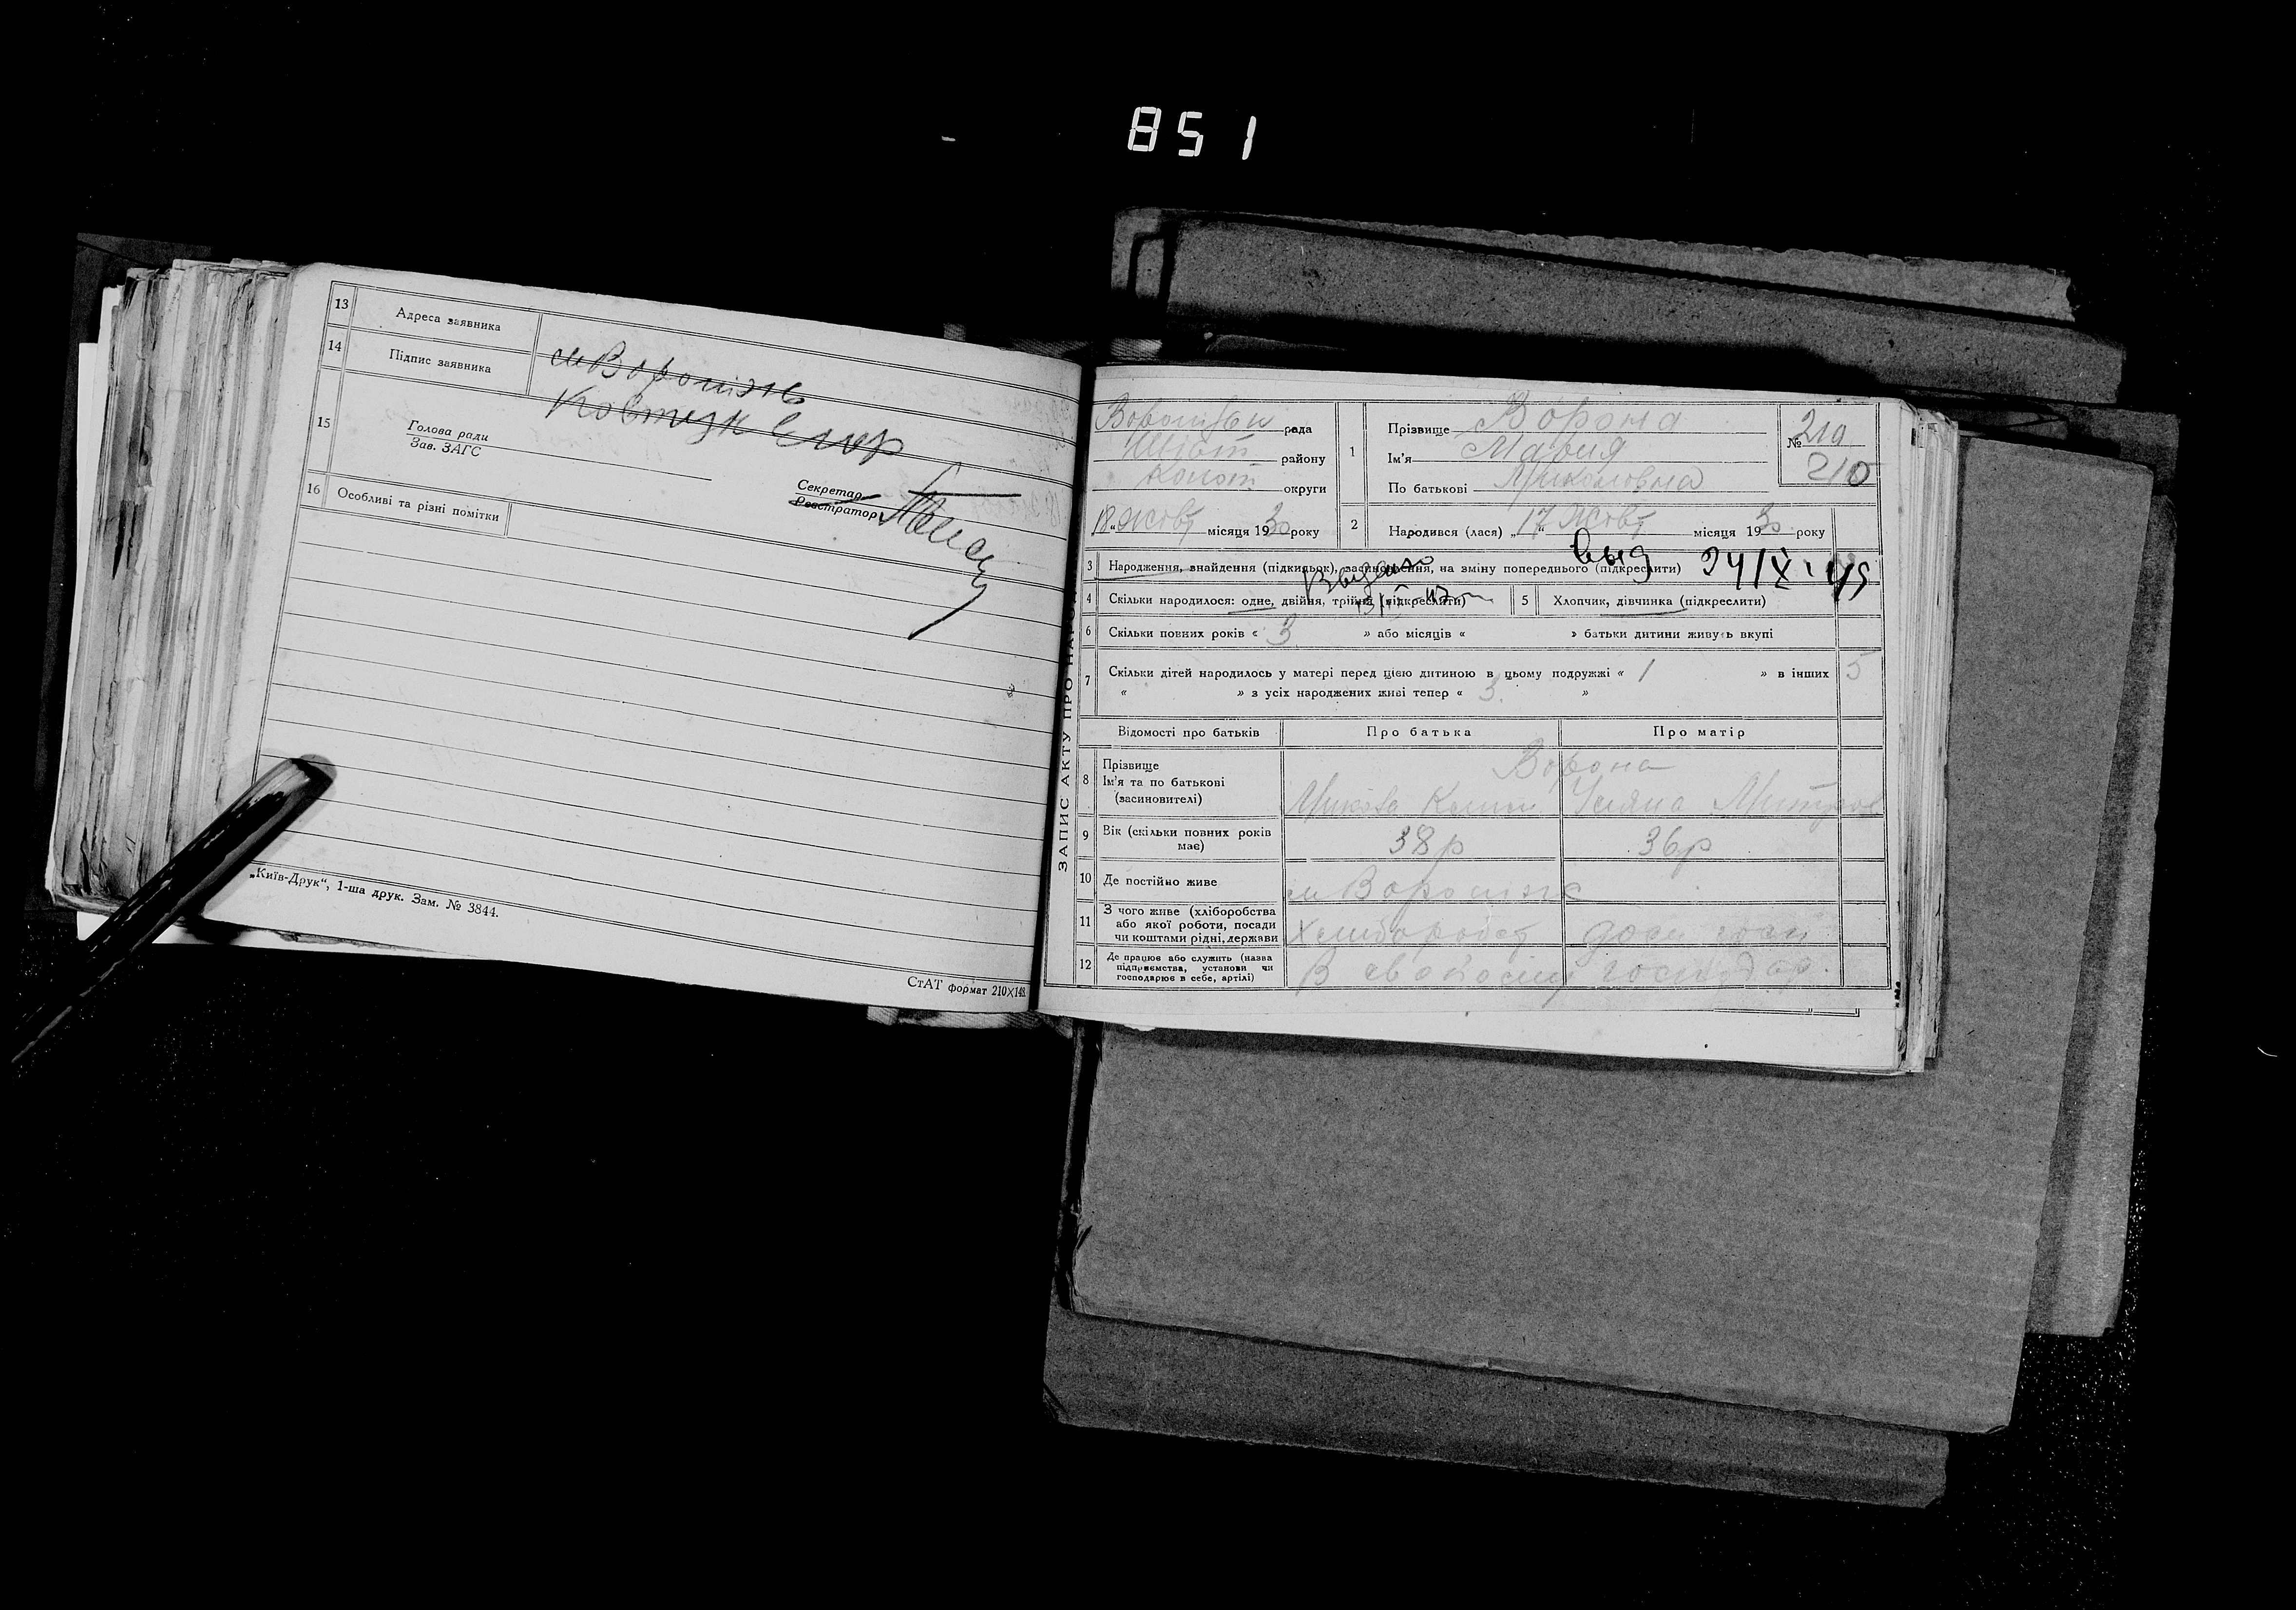 851
13 Адреса заявника
м Вороніж
14 Підпис заявника
15 Голова ради
Зав. ЗАГС
Секретар
Реєстратор
16 Особливі та різні помітки
„Київ-Друк“, 1-ша друк. Зам. № 3844.
СтАТ формат 210×148
ЗАПИС АКТУ ПРО НАРОД
рада
району
Конот округи
18 „ Жовт місяця 1930 року
1 Прізвище Ворона
Ім'я Мария
По батькові Миколовна
№ 210
210
2 Народився (лася) „ 17 “ Жовт місяця 1930 року
3 Народження, знайдення (підкидьок), засиновлення, на зміну попереднього (підкреслити)
выд 24/X
4 Скільки народилося: одне, двійня, трійня (підкреслити)
5 Хлопчик, дівчинка (підкреслити)
6 Скільки повних років « 3 » або місяців « » батьки дитини живуть вкупі
7 Скільки дітей народилось у матері перед цією дитиною в цьому подружжі « 1 » в інших 5
« » з усіх народжених живі тепер « 3 »
Відомості про батьків Про батька Про матір
8 Прізвище
Ім'я та по батькові
(засиновителі)
Ворона
Микола Уляна
9 Вік (скільки повних років
має)
38р 36р
10 Де постійно живе
м Вороніж
11 З чого живе (хліборобства
або якої роботи, посади
чи коштами рідні, держави
12 Де працює або служить (назва
підприємства, установи чи
господарює в себе, артілі)
В господар.